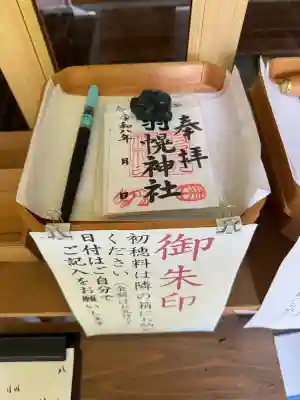 奉拝
羽幌神社
令和八年　月　日
御朱印
初穂料は隣の箱にお納め
ください
日付はご自分で
ご記入をお願いします